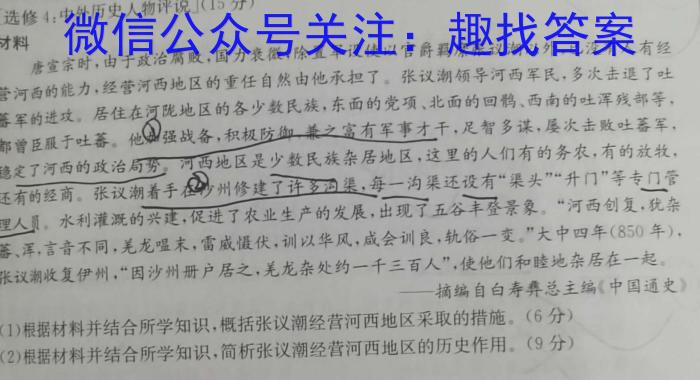 [选修4:中外历史人物评说](15分)
微信公众号关注:趣找答案
材料
唐宣宗时,由于政治腐败,国力衰微,除置军设使以官爵羁縻张议潮以外,也没有有经
营河西的能力,经营河西地区的重任自然由他承担了。张议潮领导河西军民,多次击退了吐
蕃军的进攻。居住在河陇地区的各少数民族,东面的党项、北面的回鹘、西南的吐浑残部等,
都曾臣服于吐蕃。他①加强战备,积极防御,兼之富有军事才干,足智多谋,屡次击败吐蕃军,
稳定了河西的政治局势。河西地区是少数民族杂居地区,这里的人们有的务农,有的放牧,
还有的经商。张议潮着手在②沙州修建了许多沟渠,每一沟渠还设有“渠头”“升门”等专门管
理人员。水利灌溉的兴建,促进了农业生产的发展,出现了五谷丰登景象。“河西创复,犹杂
蕃、浑,言音不同,羌龙嗢末,雷威慑伏,训以华风,咸会训良,轨俗一变。”大中四年(850年),
张议潮收复伊州,“因沙州册户居之,羌龙杂处约一千三百人”,使他们和睦地杂居在一起。
——摘编自白寿彝总主编《中国通史》
(1)根据材料并结合所学知识,概括张议潮经营河西地区采取的措施。(6分)
(2)根据材料并结合所学知识,简析张议潮经营河西地区的历史作用。(9分)